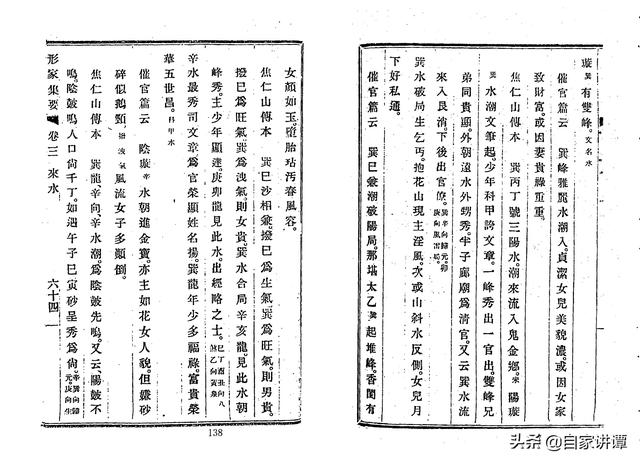 璇巽有雙峰。文名水
催官篇云　巽峰雅麗水潮入。貞潔女兒美貌濃。或因女家
致財富。或因妻貴祿重重。
焦仁山傳本　巽丙丁號三陽水。潮來流入鬼金鄉。陽璇
巽水潮文筆起。少年科甲誇文章。一峰秀出一官出。雙峰兄
弟同貴顯。外朝遠水外甥秀。半子廊廟為清官。又云巽水流
來入艮。下後出官僚。巽辛向歸元。卯庚向風雷
巽水破局生乞丐。抱花山現主淫風。次或山斜水反側。女兒月
下好私通。
催官篇云　巽巳兼潮破陽局。那堪太乙巽起堆峰。香閨有
女顏如玉。墮胎玷污春風容。
焦仁山傳本　巽巳沙相兼。撥巳為生氣。巽為旺氣。則男貴。
撥巳為旺氣。巽為洩氣。則女貴。巽水合局辛亥龍。見此水朝
峰秀。主少年顯達。庚卯龍見此水。出經略之士。巳丁酉丑向八煞乙向黃泉
辛水最秀司文章。為官榮顯姓名揚。巽龍年少多福祿。富貴榮
華五世昌。科甲水
催官篇云　陰璇辛水朝進金寶。亦主如花女人貌。但嫌砂
碎似鵝頸　風流女子多顛倒。
焦仁山傳本　巽龍。辛向。辛水潮。為陰鼓先鳴。又云。陽鼓不
鳴。陰鼓鳴。人口尚千丁。如遇午子巳寅砂呈秀為尚。辛巽向歸元庚向生
形家集要　卷三　來水　六十四
138
头条 @自家讲谭